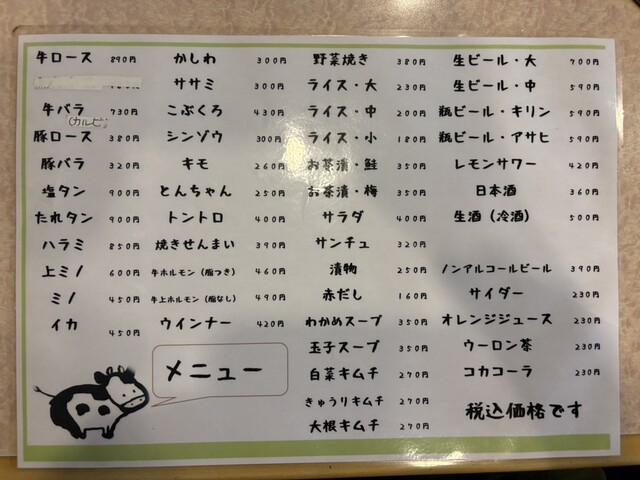 牛ロース 890円
牛バラ 730円
(カルビ)
豚ロース 380円
豚バラ 320円
塩タン 900円
たれタン 900円
ハラミ 850円
上ミノ 600円
ミノ 450円
イカ 450円
かしわ 300円
ササミ 300円
こぶくろ 430円
シンゾウ 300円
キモ 260円
とんちゃん 250円
トントロ 400円
焼きせんまい 390円
牛ホルモン(脂つき) 460円
牛上ホルモン(脂なし) 490円
ウインナー 420円
野菜焼き 380円
ライス・大 230円
ライス・中 200円
ライス・小 180円
お茶漬・鮭 350円
お茶漬・梅 350円
サラダ 400円
サンチュ 320円
漬物 250円
赤だし 160円
わかめスープ 350円
玉子スープ 350円
白菜キムチ 270円
きゅうりキムチ 270円
大根キムチ 270円
生ビール・大 700円
生ビール・中 590円
瓶ビール・キリン 590円
瓶ビール・アサヒ 590円
レモンサワー 420円
日本酒 360円
生酒(冷酒) 500円
ノンアルコールビール 390円
サイダー 230円
オレンジジュース 230円
ウーロン茶 230円
コカコーラ 230円
メニュー
税込価格です